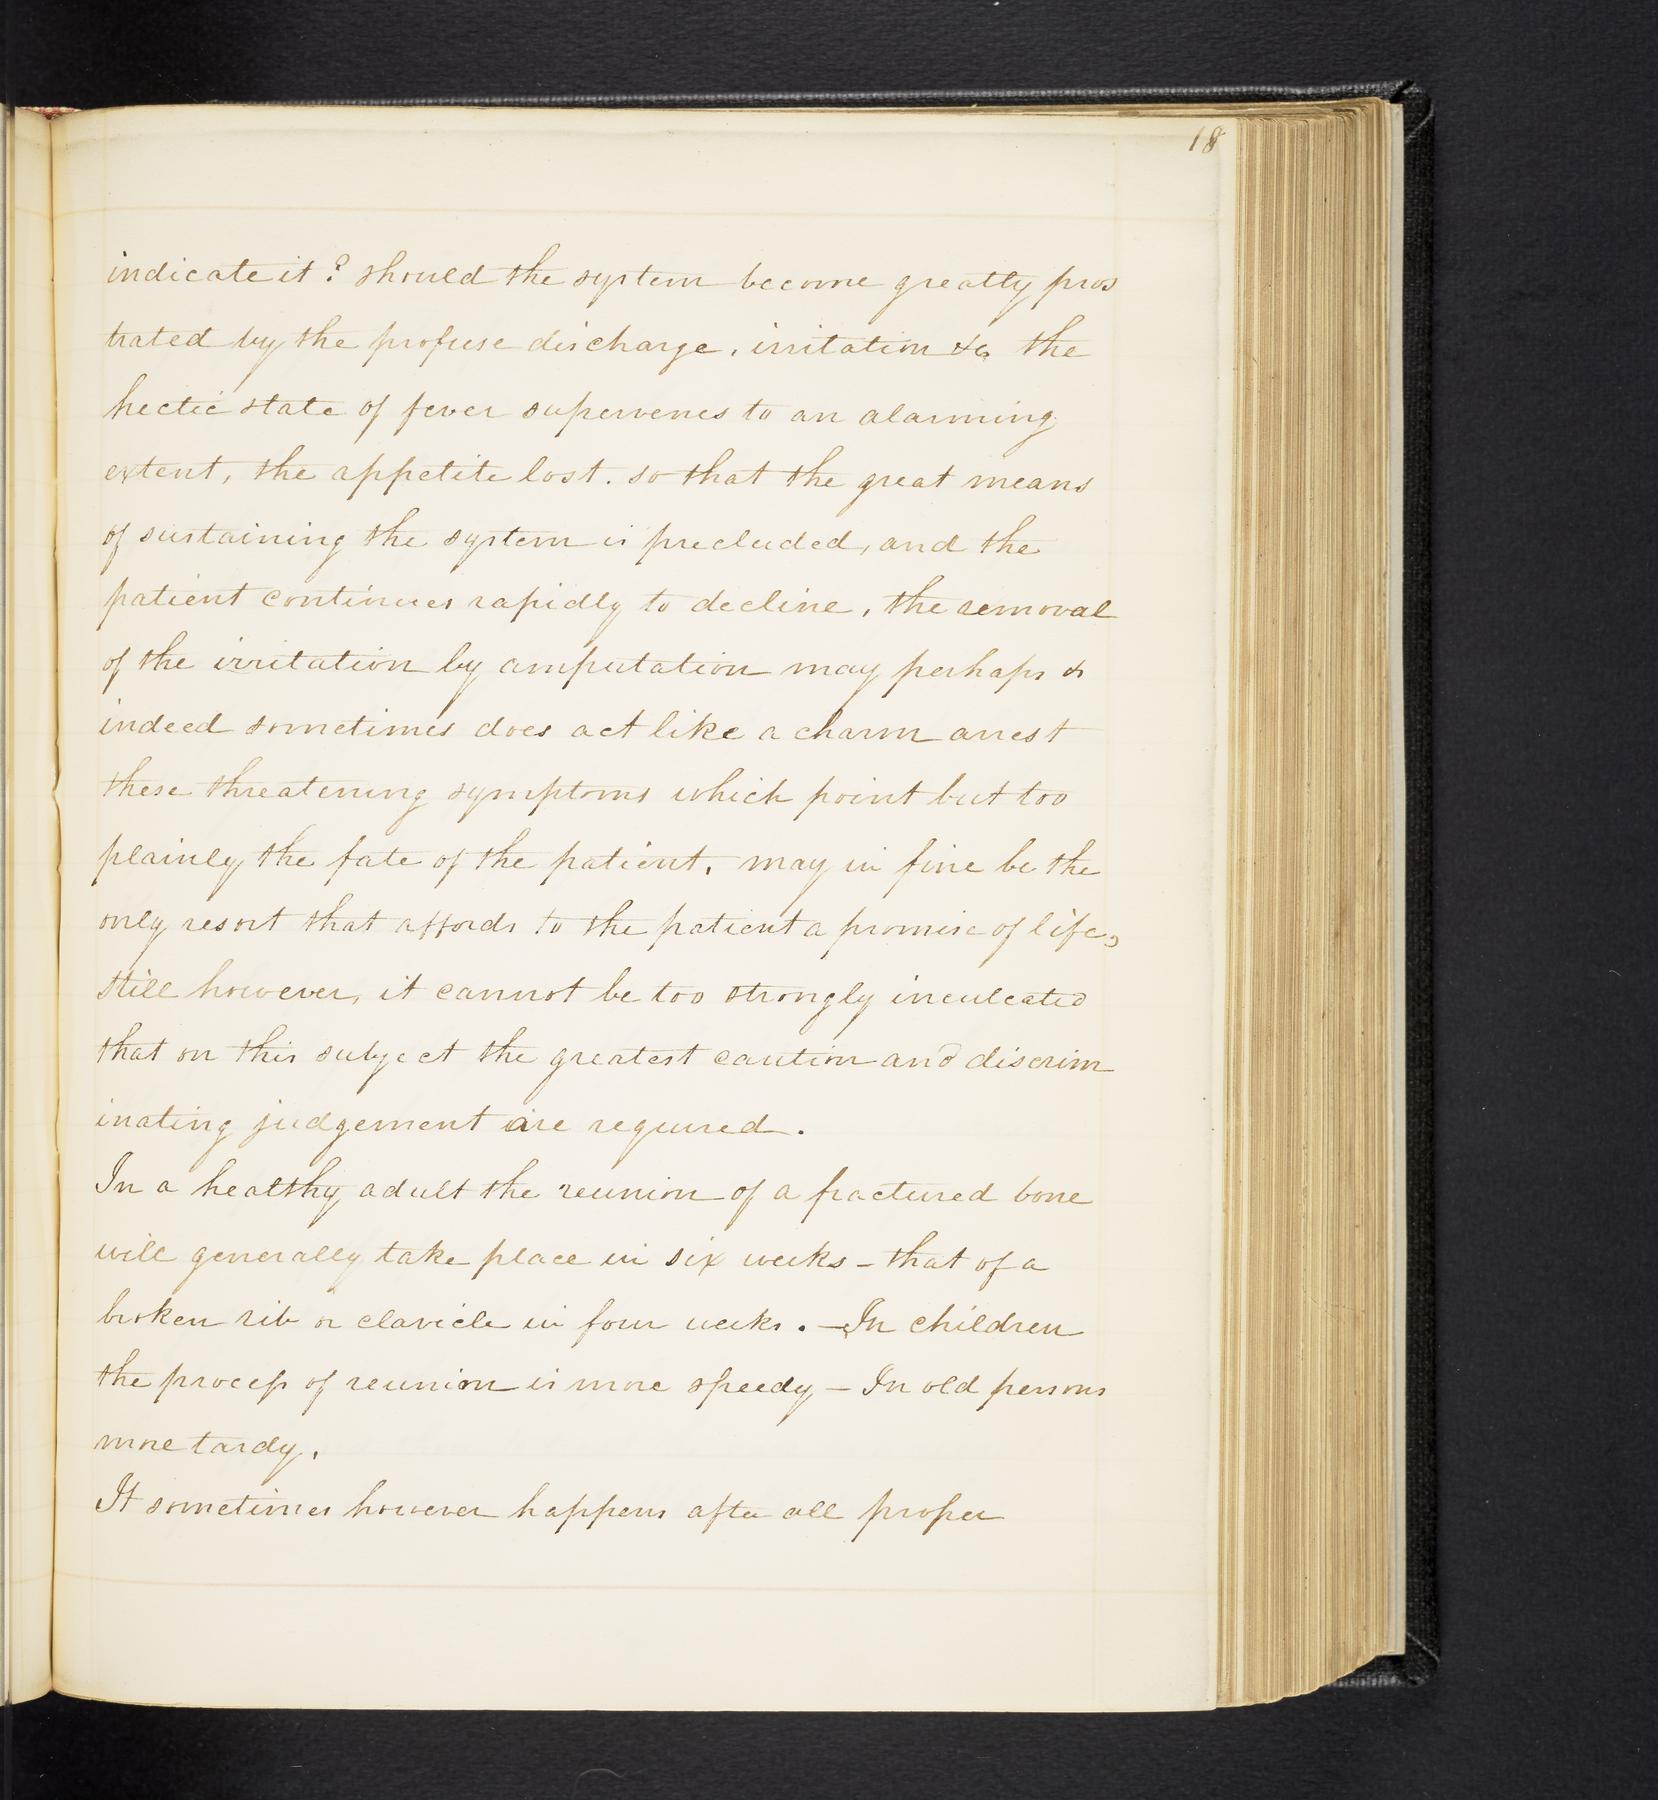 18
indicate it? should the system become greatly pros
trated by the profuse discharge, irritation &c the
hectic state of fever supervenes to an alarming
extent, the appetite lost. so that the great means
of sustaining the system is precluded, and the
patient continues rapidly to decline, the removal
of the irritation by amputation may perhaps &
indeed sometimes does act like a charm arrest
these threatening symptoms which point but too
plainly the fate of the patient. may in fine be the
only resort that affords to the patient a promise of life,
still however, it cannot be too strongly inculcated
that on this subject the greatest caution and discrim
inating judgement are required.
In a healthy adult the reunion of a fractured bone
will generally take place in six weeks - that of a
broken rib or clavicle in four weeks. - In children
the process of reunion is more speedy - In old persons
more tardy.
It sometimes however happens after all proper